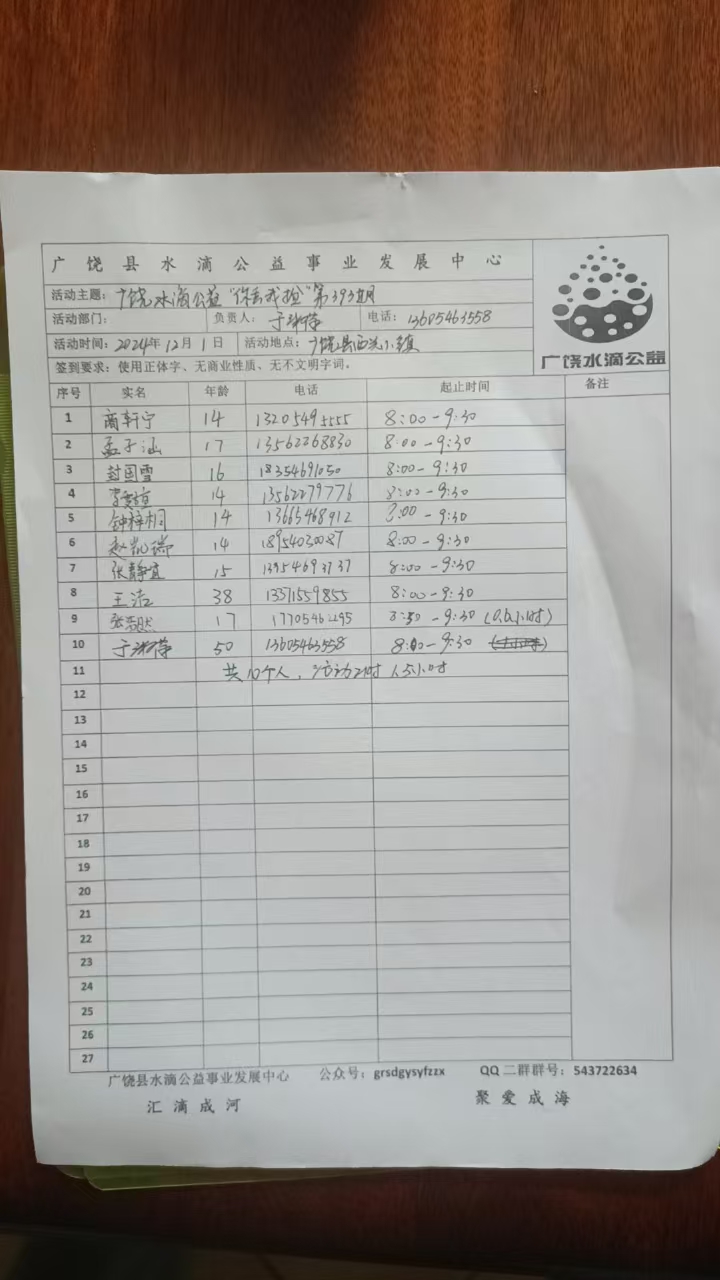 广饶县水滴公益事业发展中心
活动主题：广饶水滴公益"你丢我捡"第393期
活动部门： 负责人： 电话：13605463558
活动时间：2024年12月1日 活动地点：广饶县西关小镇
签到要求：使用正体字、无商业性质、无不文明字词。
广饶水滴公益
序号 实名 年龄 电话 起止时间 备注
1 商轩宁 14 13205495555 8:00-9:30
2 孟子涵 17 13562268830 8:00-9:30
3 封国雪 16 18354691050 8:00-9:30
4 14 13562279776 8:00-9:30
5 钟梓桐 14 13665468912 8:00-9:30
6 赵凯瑞 14 18954030087 8:00-9:30
7 张静宜 15 13954693737 8:00-9:30
8 王洁 38 13371559855 8:00-9:30
9 张浩然 17 17705462295 8:50-9:30
10 50 13605463558 8:00-9:30
11 共10个人，活动时 1.5小时
12
13
14
15
16
17
18
19
20
21
22
23
24
25
26
27
广饶县水滴公益事业发展中心 公众号：grsdgysyfzzx QQ二群群号：543722634
汇滴成河 聚爱成海